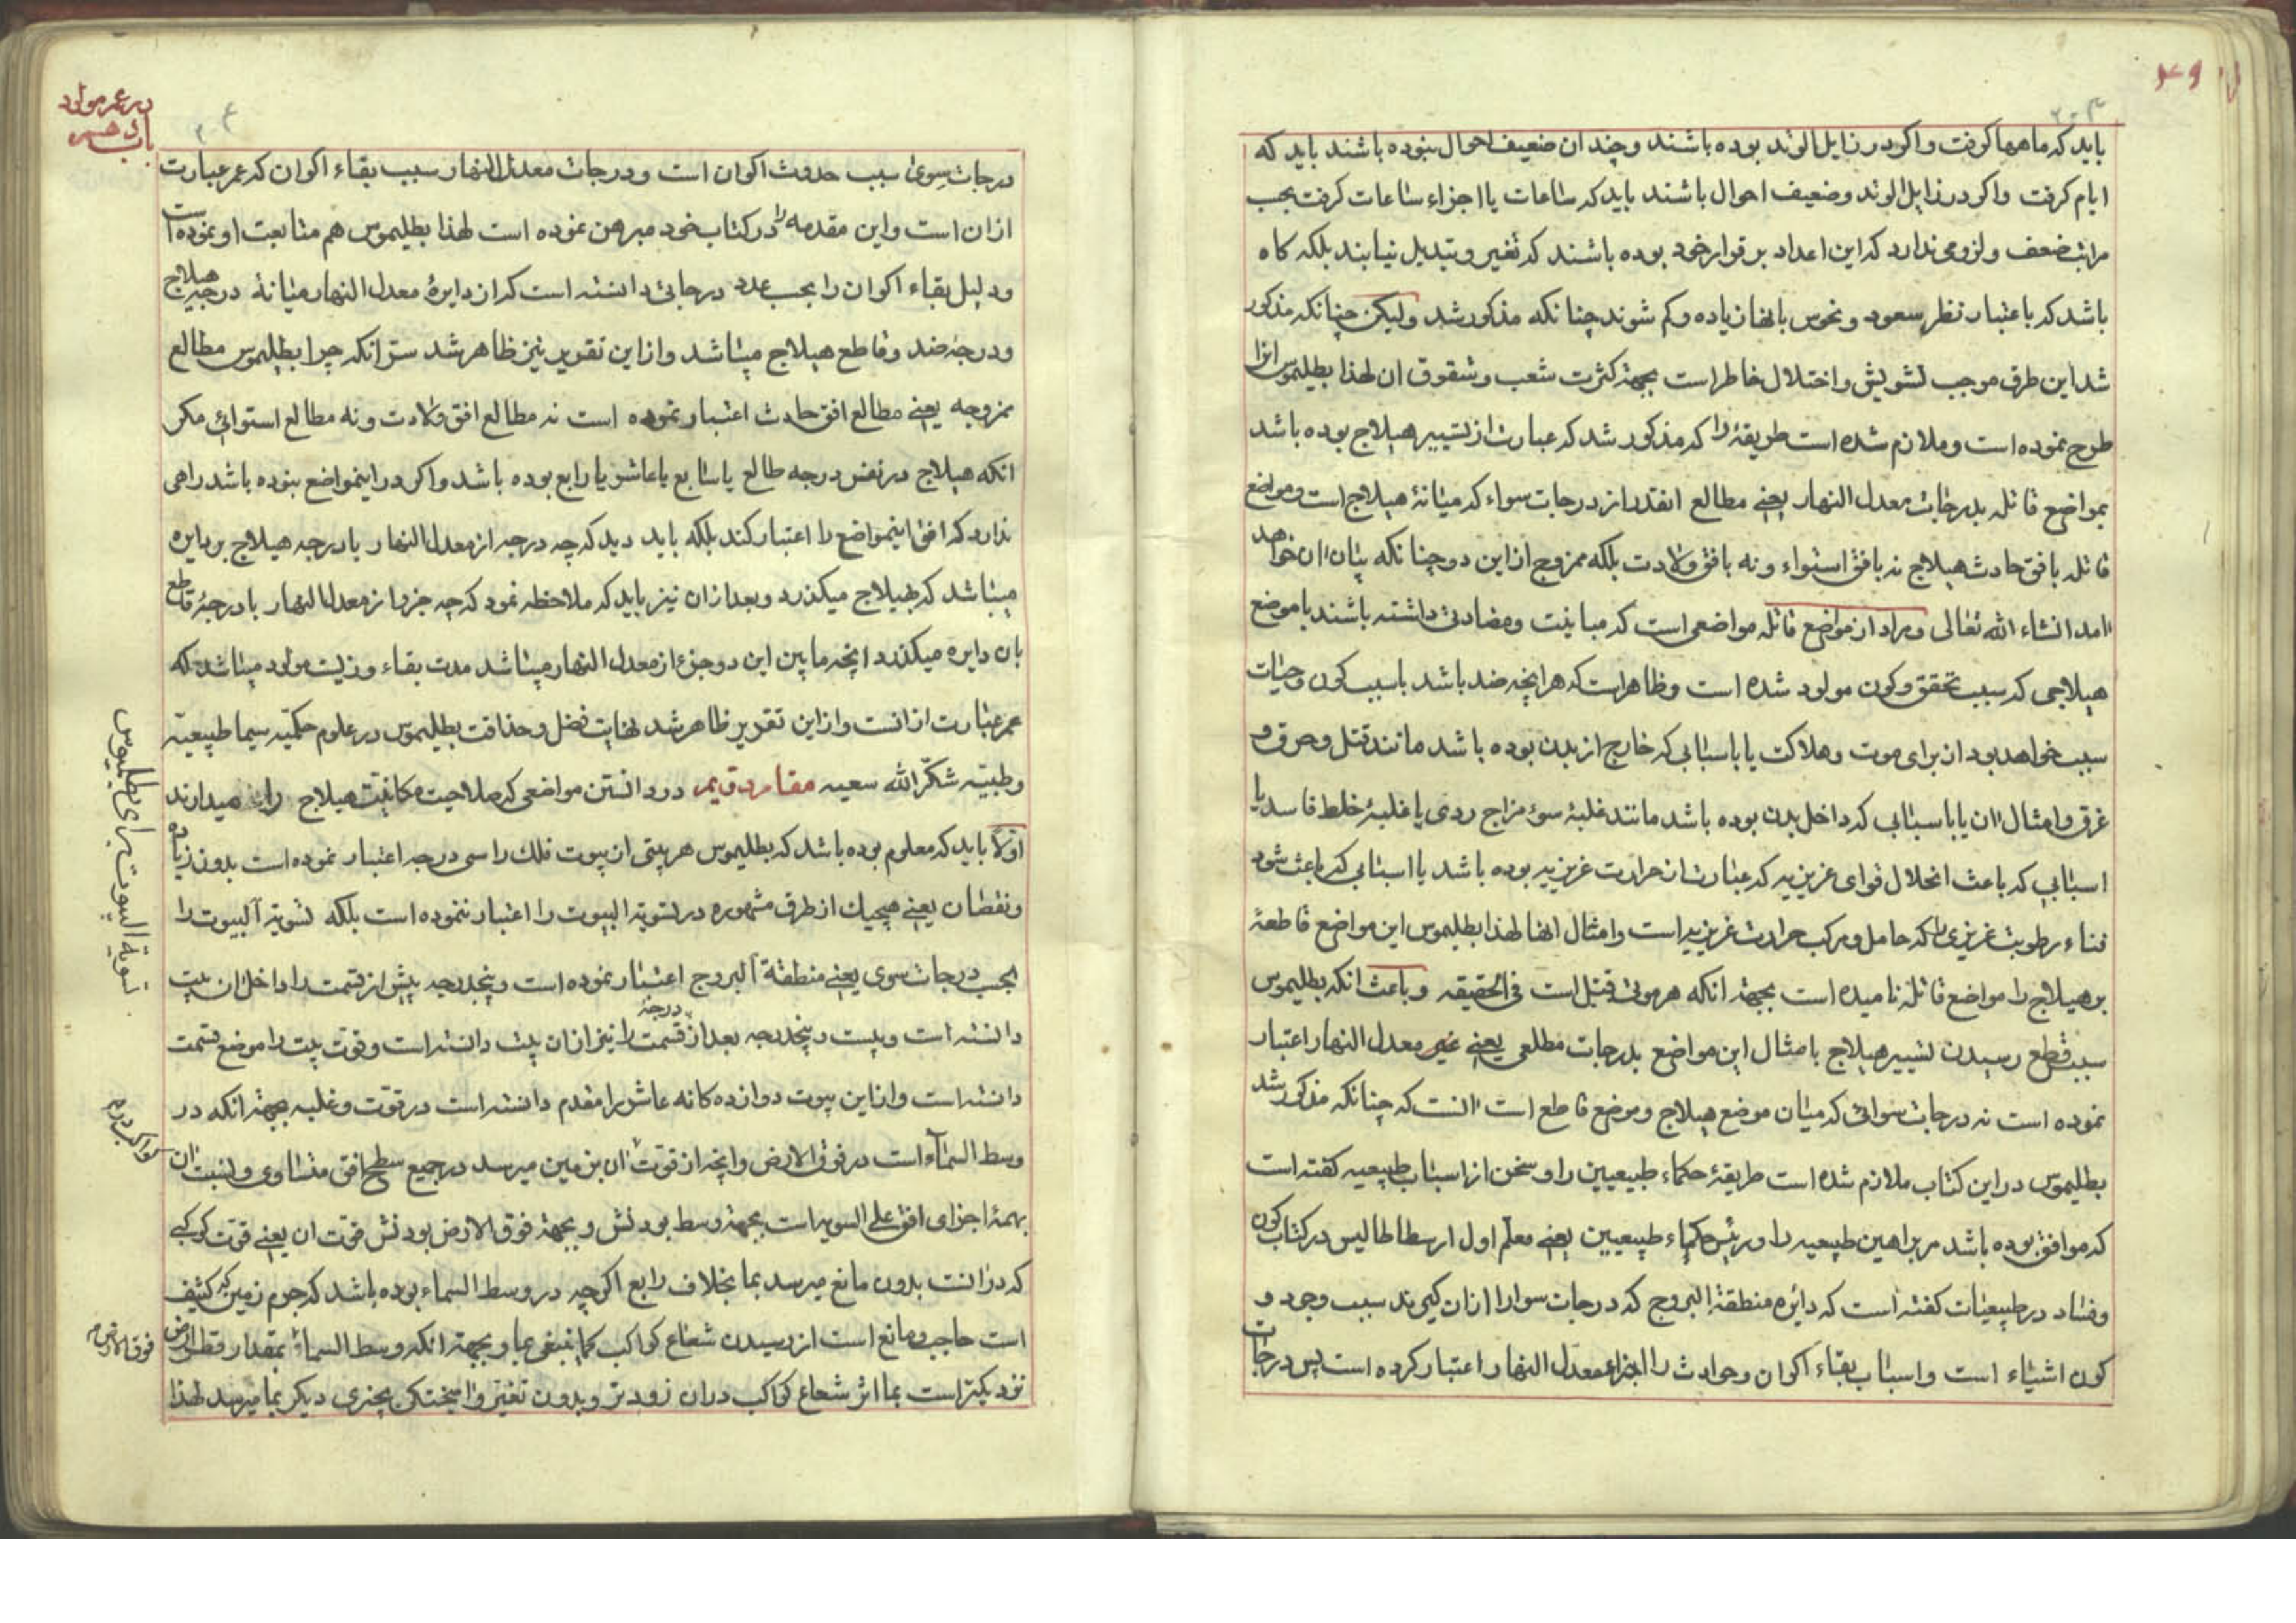 باید که ماهها گرفت و اگر در زایل الوتد بوده باشند و چندان ضعیف احوال نبوده باشند باید که
ایام گرفت و اگر در زایل الوتد و ضعیف احوال باشند باید که ساعات یا اجزاء ساعات گرفت بحسب
مراتب ضعف و لزومی ندارد که این اعداد بر قرار خود بوده باشند که تغیر و تبدیل نیابند بلکه گاه
باشد که باعتبار نظر سعود و نحوس بانها زیاده و کم شوند چنانکه مذکور شد ولیکن چنانکه مذکور
شد این طرق موجب تشویش و اختلال خاطر است بجهة کثرت شعب و شقوق ان لهذا بطلیموس انرا
طرح نموده است و ملازم شده است طریقهٔ را که مذکور شد که عبارت از تسییر هیلاج بوده باشد
بمواضع قاتله بدرجات معدل النهار یعنی مطالع انقدر از درجات سواء که میانهٔ هیلاج است و مواضع
قاتله بافق حادث هیلاج نه بافق استواء و نه بافق ولادت بلکه ممزوج از این دو چنانکه بیان ان خواهد
امد انشاء الله تعالی و مراد از مواضع قاتله مواضعی است که مباینت و مضادتی داشته باشند با موضع
هیلاجی که سبب تحقق و کون مولود شده است و ظاهر است که هر انچه ضد باشد با سبب کون و حیات
سبب خواهد بود از برای موت و هلاکت یا باسبابی که خارج از بدن بوده باشد مانند قتل و حرق و
غرق و امثال ان یا باسبابی که داخل بدن بوده باشد مانند غلبهٔ سوء مزاج ردی یا غلبهٔ خلط فاسد یا
اسبابی که باعث انحلال قوای غریزیه که عبارت از حرارت غریزیه بوده باشد یا اسبابی که باعث شود
فناء رطوبت غریزی را که حامل و مرکب حرارت غریزیه است و امثال انها لهذا بطلیموس این مواضع قاطعهٔ
بر هیلاج را مواضع قاتله نامیده است بجهة انکه هر موتی قتیل است فی الحقیقه و باعث انکه بطلیموس
سبب قطع رسیدن تسییر هیلاج بامثال این مواضع بدرجات مطلعی یعنی غیر معدل النهار اعتبار
نموده است نه درجات سوائی که میان موضع هیلاج و موضع قاطع است انست که چنانکه مذکور شد
بطلیموس در این کتاب ملازم شده است طریقهٔ حکماء طبیعیین را و سخن از اسباب طبیعیه گفته است
که موافق بوده باشد مر براهین طبیعیه را و رئیس حکماء طبیعیین یعنی معلم اول ارسطاطالیس در کتاب کون
و فساد در طبیعیات گفته است که دائره منطقة البروج که درجات سوا را از ان گیرند سبب وجود و
کون اشیاء است و اسباب بقاء اکوان و حوادث را اجزاء معدل النهار اعتبار کرده است پس درجات
در عمر مولود
درجات سوی سبب حدوث اکوان است و درجات معدل النهار سبب بقاء اکوان که عمر عبارت
ازان است و این مقدمه را در کتاب خود مبرهن نموده است لهذا بطلیموس هم متابعت او نموده است
و دلیل بقاء اکوان را بحسب عدد درجاتی دانسته است که از دایرهٔ معدل النهار میانهٔ درجه هیلاج
و درجهٔ ضد و قاطع هیلاج میباشد و از این تقریر نیز ظاهر شد سر انکه چرا بطلیموس مطالع
ممزوجه یعنی مطالع افق حادث اعتبار نموده است نه مطالع افق ولادت و نه مطالع استوائی مگر
انکه هیلاج در نفس درجه طالع یا سابع یا عاشر یا رابع بوده باشد و اگر در اینمواضع نبوده باشد راهی
ندارد که افق اینمواضع را اعتبار کند بلکه باید دید که چه درجه از معدل النهار با درجه هیلاج بر دایره
میباشد که بهیلاج میگذرد و بعد ازان نیز باید که ملاحظه نمود که چه جزو از معدل النهار با درجهٔ قاطع
بان دایره میگذرد انچه مابین این دو جزء از معدل النهار میباشد مدت بقاء و زیست مولود میباشد که
عمر عبارت ازانست و از این تقریر ظاهر شد نهایت فضل و حذاقت بطلیموس در علوم حکمیه سیما طبیعیه
و طبیه شکر الله سعیه مقام دویم در دانستن مواضعی که صلاحیت مکانیت هیلاج را میدارند
اولا باید که معلوم بوده باشد که بطلیموس هر بیتی از بیوت فلک را سی درجه اعتبار نموده است بدون زیاده
و نقصان یعنی هیچیک از طرق مشهوره در تسویة البیوت را اعتبار ننموده است بلکه تسویة البیوت را
بحسب درجات سوی یعنی منطقة البروج اعتبار نموده است و پنجدرجه پیش از قسمت را داخل ان بیت
دانسته است و بیست و پنجدرجه بعد از درجهٔ قسمت را نیز ازان بیت دانسته است و قوت بیت را موضع قسمت
دانسته است و از این بیوت دوازده گانه عاشر را مقدم دانسته است در قوت و غلبه بجهة انکه در
وسط السماء است در فوق الارض و انچه از قوت ان بزمین میرسد در جمیع سطح افق متساوی و نسبت ان
بهمهٔ اجزای افق علی السویه است بجهة وسط بودنش و بجهة فوق الارض بودنش قوت ان یعنی قوت کوکبی
که درانست بدون مانع میرسد بما بخلاف رابع اگرچه در وسط السماء بوده باشد که جرم زمین که کثیف
است حاجب و مانع است از رسیدن شعاع کواکب کما ینبغی بما و بجهة انکه وسط السماء بمقدار قطر ارض
نزدیکتر است بما اثر شعاع کواکب دران زودتر و بدون تغیر و امیختگی بچیزی دیگر بما میرسد لهذا
تسویة البیوت برای بطلیموس
فوق الارض